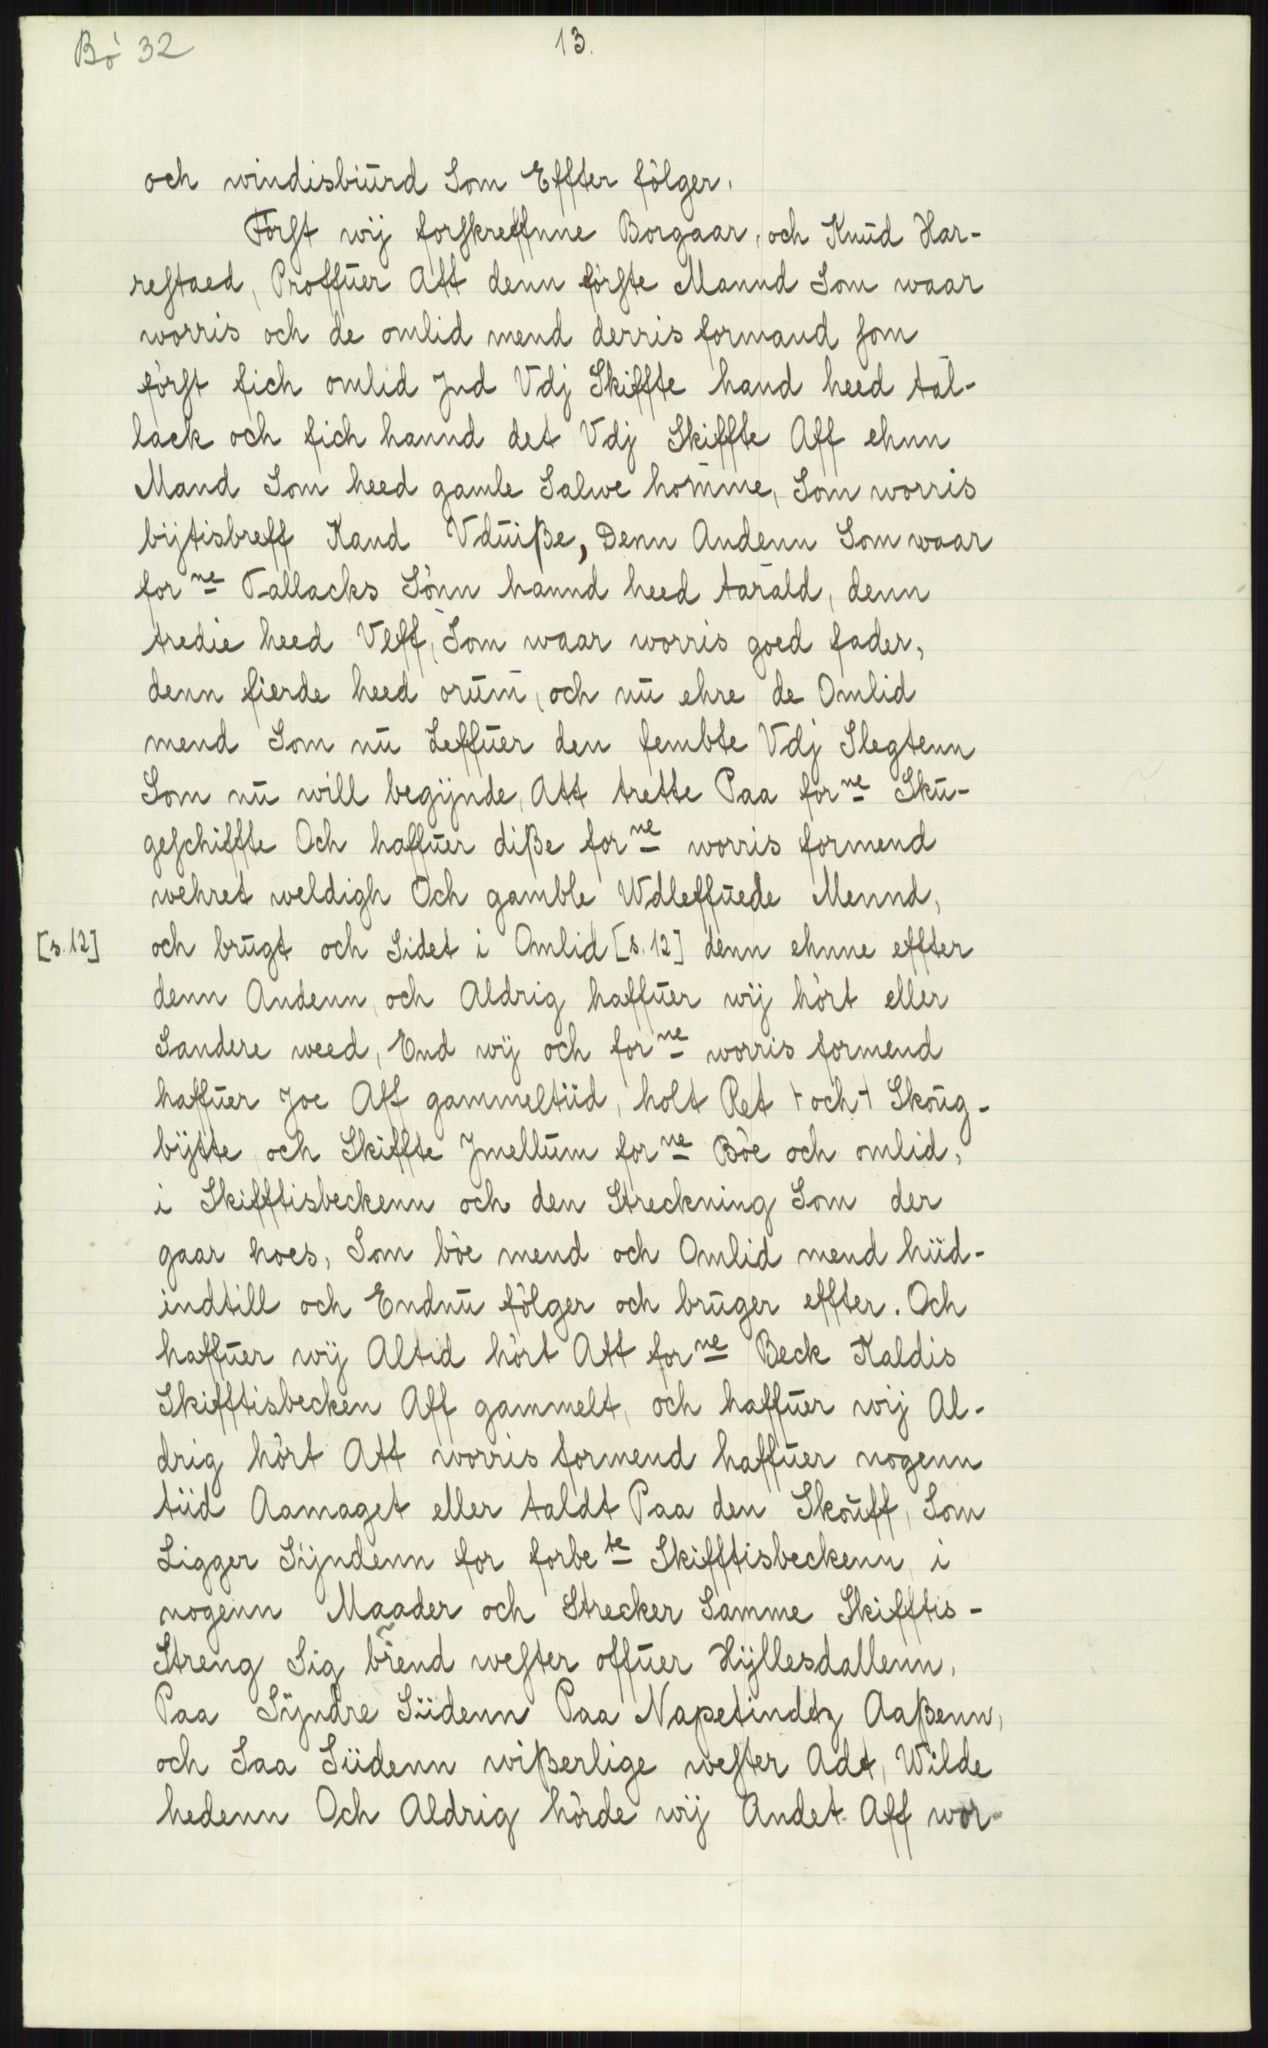 Bó 32
13.
och windisbiŭrd Som Effter fölger.
Förſt wij forſkreffnne Borgaar, och Knŭd Har-
reſtaed, Proffŭer Att denn förſte Mannd Som waar
worris och de omlid mend derris formand ſom
förſt fich omlid Jnd Vdj Skiffte hand heed tal-
lack och fich hannd det Vdj Skiffte Aff ehnn
Mand Som heed gamle Salwe homme, Som worris
bijtisbreff Kand Vdŭiße, Denn Andenn Som waar
forne Tallacks Sönn hannd heed tarald, denn
tredie heed Vlff, Som waar worris goed fader,
denn fierde heed orŭm, och nŭ ehre de Omlid
mend Som nŭ Leffŭer den fembte Vdj Slegtenn
Som nŭ will begÿnde, Att trette Paa forne Skŭ-
geſchiffte Och haffŭer diße forne worris formend
wehret weldigh Och gamble Wdleffŭede Mennd,
[s.12] och brŭgt och Sidet i Omlid [s.12] denn ehnne effter
denn Andenn, och Aldrig haffŭer wij hört eller
Sandere weed, End wij och forne worris formend
haffŭer Joe Aff gammeltiid, holt Ret ⊦och⊣ Skoŭg-
bÿtte och Skiffte Jmellŭm forne Böe och omlid,
i Skifftisbeckenn och den Streckning Som der
gaar hoes, Som böe mend och Omlid mend hiid-
indtill och Endnŭ fölger och brŭger effter. Och
haffŭer wij Altid hört Att forne Beck Kaldis
Skifftisbecken Aff gammelt, och haffŭer wij Al-
drig hört Att worris formend haffŭer nogenn
tiid Aamaget eller taldt Paa den Skoŭff, Som
Ligger Sÿndenn for forbete Skifftisbeckenn i
nogenn Maader och Strecker Samme Skifftis-
Streng Sig brend weſter offŭer Hÿllesdallenn,
Paa Sÿndre Siidenn Paa Napetindtz Aaßenn,
och Saa Siidenn wißerlige weſter Adt, Wilde
hedenn Och Aldrig hörde wij Andet Aff wor-